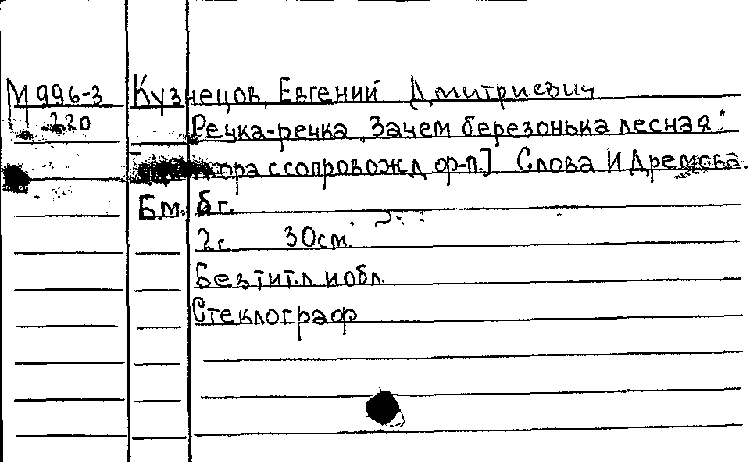 М 996-3 Кузнецов, Евгений Дмитриевич
220 Речка-речка. Зачем березонька лесная:
хора с сопровожд. ор-п.] Слова И Дремова.
Б.м. б.г.
2 с. 30см.
Без тит.л и обл.
Стеклограф